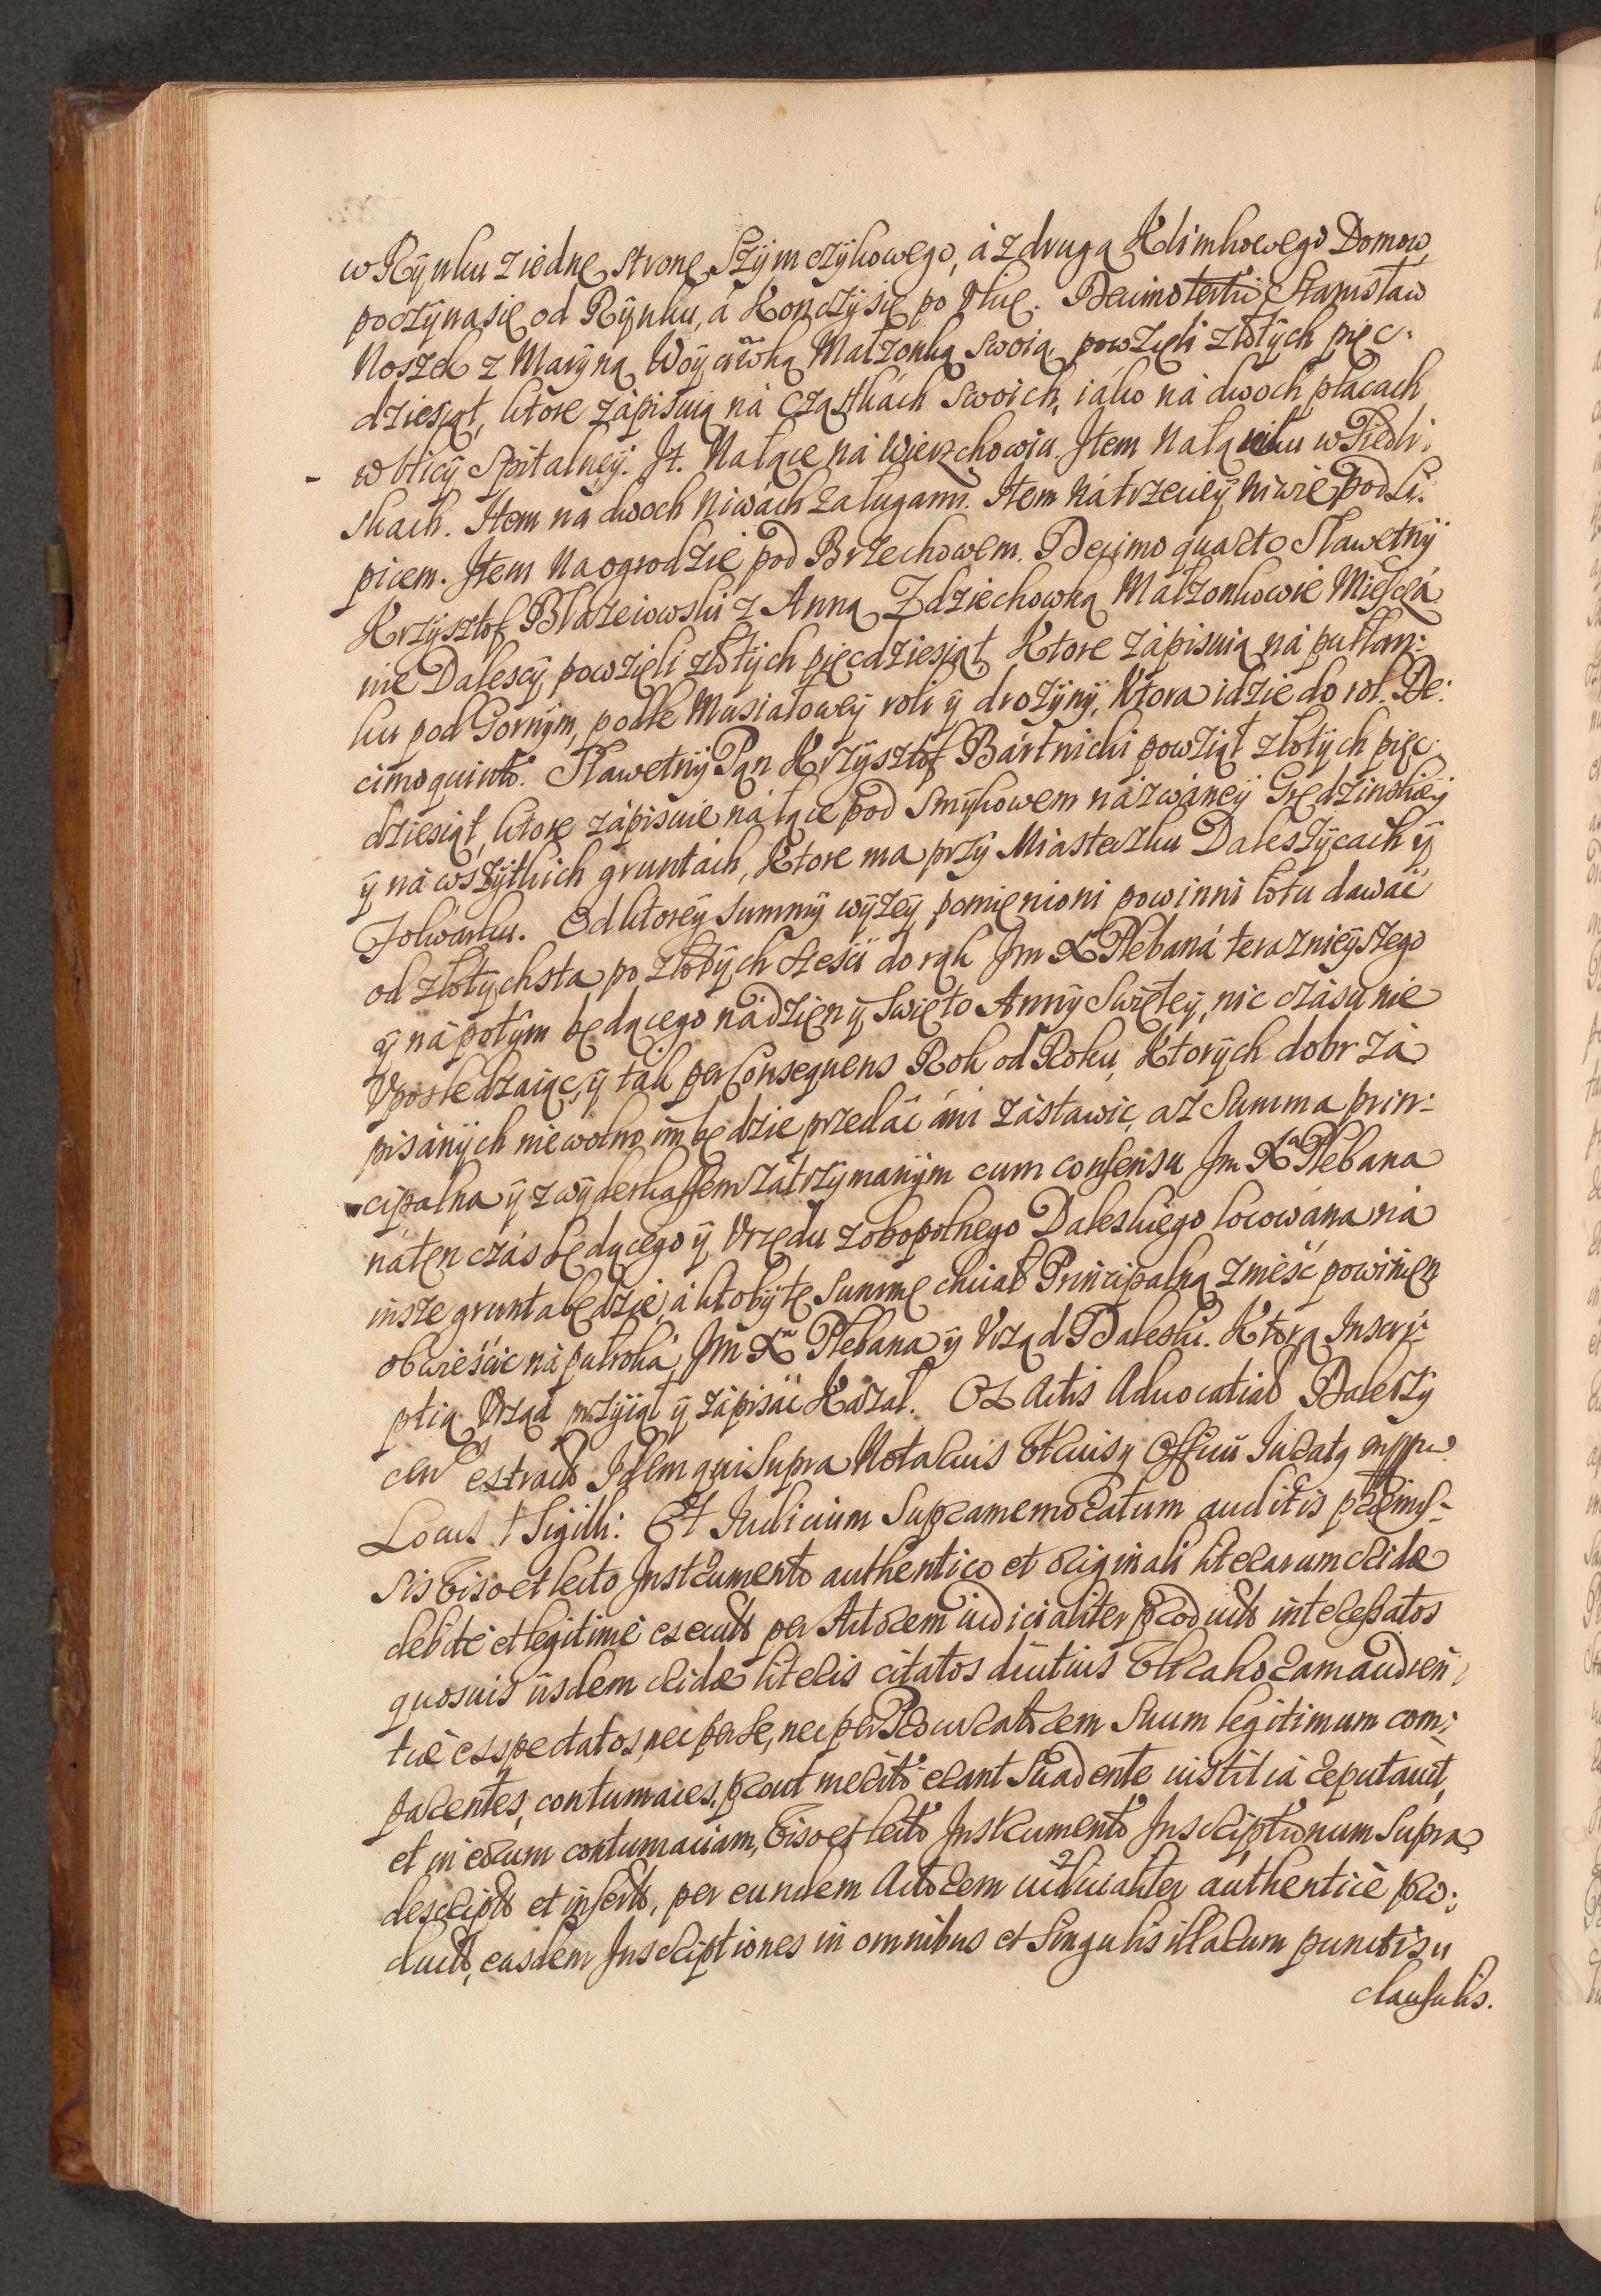 w Rynku z iednę stronę Szymczykowego, á z drugą Klimkowego Domow,
poczyna się od Rynku, á Konczy się po Vlicę. Decimotertio Stanisław
Noszek z Maryną Woycikowką Małzonką swoią powzięli złotych pięc:
dziesiąt, ktore zápisuią ná Cząstkách swoich, iáko ná dwoch placach
w Vlicy Szpitalney. It. Na łące ná Wierzchowiu. Item na łąnku w Siedli:
skach. Item na dwoch Niwách za ługami. Item ná trzeciey niwie pod Li:
picem. Item na ogrodzie pod Brzechowem. Decimo quarto Sławetny
Krzysztof Błazeiowski z Anną Zdziechowką Małzonkowie Miesczá
nie Dalescy powzięli złotych pięcdziesiąt Ktore zápisuią ná pułłan:
ku pod Gornym, podle Musiałowey roli y drozyny, Ktora idzie do rol. De:
cimoquinto. Sławetny Pan Krzysztof Bártnicki powziął złotych pięc:
dziesiąt, ktore zápisuie ná łące pod Smykowem názwáney Grędzinskiey
y ná wszytkich gruntách, Ktore ma przy Miasteczku Daleszycach y
Folwárku. Od ktorey Summy wyzey pomięnioni powinni lotu dawáć
od złotych sta po złotych sześć do rąk Jm X Plebaná teraznieyszego
y nápotym będącego ná dzięn y Swięto Anny Swiętey, nic czásu nie
Vposledzaiąc, y tak per Consequens Rok od Roku, Ktorych dobr zá
pisánych niewolno im będzie przedáć áni zástawic, az Summa prin:
cipalna y z wyderkaffem zátrzymánym cum consensu Jm Xa Plebana
náten czás będącego y Vrzędu zobopolnego Daleskiego locowána ná
insze grunta będzie, á ktoby tę Summę chciał Principalną znieść powinien
obwieścic ná puł roká, Jm Xa Plebana y Vrząd Daleski. Ktorą Inscri:
ptią Vrząd przyiął y zápisáć Kázał. Ex Actis Advocatial Daleszy
cen extract Idem qui supra Notarius Officii Jurat mppa
Locus † Sigilli: Et Iudicium Supramemoratum auditis præmis:
sis viso et lecto Instrumento authentico et originali literarum cridæ
debite et legitime executo per Actorem iudicialiter producto interessatos
quosuis iisdem cridæ literis citatos diutius Vltra horam audien:
tiæ exspectatos, nec per se, nec per Procuratorem Suum legitimum com:
parentes, contumaces, prout merito erant Suadente iustitia reputauit,
et in eorum contumaciam, viso et lecto Instrumento Inscriptionum Supra
descripto et inserto, per eundem Actorem iudicialiter authentice pro:
ducto, easdem Inscriptiones in omnibus et Singulis illarum punctis
clausulis.